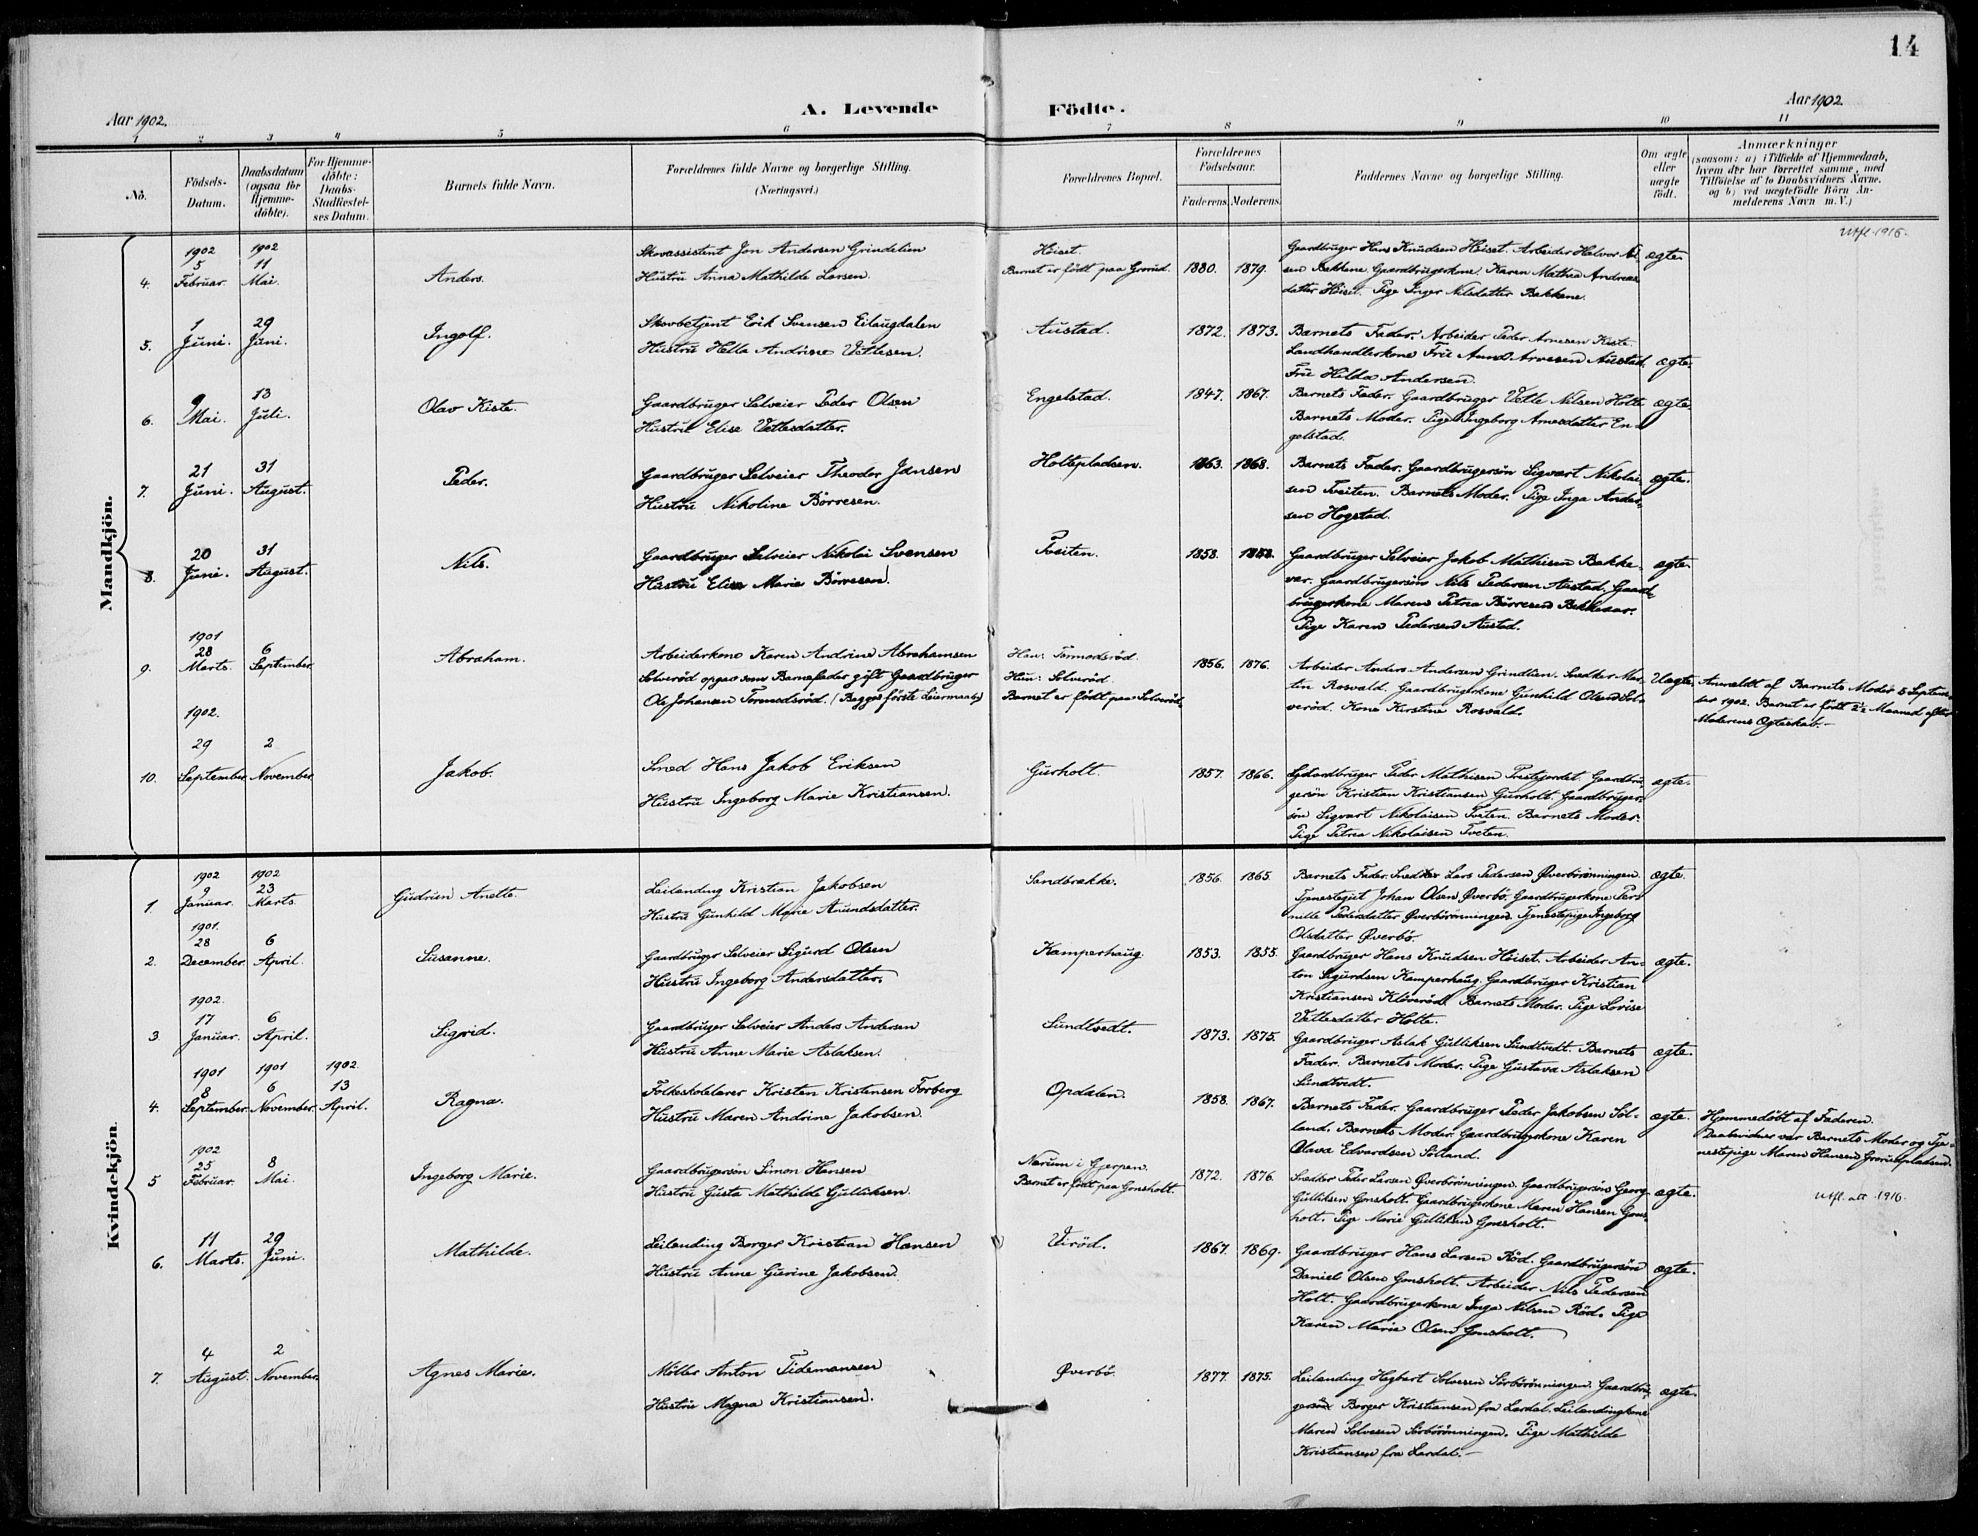 14
Aar 1902.
A. Levende
Födte.
Aar 1902
1 2 3 4 5 6 7 8 9 10 11
No.
Födsels-Datum.
Daabsdatum (ogsaa for Hjemme-döbte).
For Hjemme-döbte: Daabs-Stadfæstel-ses Datum.
Barnets fulde Navn.
Forældrenes fulde Navne og borgerlige Stilling. (Næringsvei.)
Forældrenes Bopæl.
Forældrenes Födselsaar.
Faderens. Moderens.
Faddernes Navne og borgerlige Stilling.
Om ægte eller uægte födt.
Anmærkninger
(saasom: a) i Tilfælde af Hjemmedaab,
hvem der har forrettet samme, med
Tilföielse af to Daabsvidners Navne.
og b) ved uægtefödte Börn An-
melderens Navn m. V.)
Mandkjön.
Utfl. 1916.
4. 1902 5 Februar. 1902 11 Mai. Anders.
Skovassistent Jon Andersen Grindelien
Hustru Anna Mathilde Larsen.
Höiset.
Barnet er födt paa Grorud.
1880. 1879.
Gaardbruger Hans Knudsen Höiset. Arbeider Halvor
sen Bakkene. Gaardbrugerkone Karen Mathea Andreas
datter Höiset. Pige Inger Nilsdatter Bakkene.
ægte.
5. 1 Juni. 29 Juni. Ingolf.
Skovbetjent Erik Svensen Eilaugdalen
Hustru Hella Andrine Vetlesen.
Austad.
1872. 1873.
Barnets Fader. Arbeider Peder Arnesen Kiste.
Landhandlerkone Fru Anna Arnesen Austad.
Fru Hilda Andersen.
ægte.
6. 9 Mai. 13 Juli. Olav Kiste.
Gaardbruger Selveier Peder Olsen
Hustru Elise Vetlesdatter.
Engelstad.
1847. 1867.
Barnets Fader. Gaardbruger Vetle Nilsen Holte
Barnets Moder. Pige Ingeborg Arnesdatter En-
gelstad.
ægte.
7. 21 Juni. 31 August. Peder.
Gaardbruger Selveier Theodor Jansen
Hustru Nikoline Börresen.
Holtepladsen.
1863. 1868.
Barnets Fader. Gaardbrugersön Sigvart Nikolai-
sen Tveiten. Barnets Moder. Pige Inga Ander-
sen Hogstad.
ægte.
8. 20 Juni. 31 August. Nils.
Gaardbruger Selveier Nikolai Svensen
Hustru Elise Marie Börresen.
Tveiten.
1858.
Gaardbruger Selveier Jakob Mathisen Bakke-
var. Gaardbrugersön Nils Pedersen Austad. Gaard-
brugerkone Maren Petrea Börresen Bakkevar.
Pige Karen Pedersen Austad.
ægte.
9. 1901 28 Marts. 6 September. Abraham.
Arbeiderkone Karen Andrine Abrahamsen
Solveröd opgav som Barnefader gift Gaardbruger
Ole Johansen Tormodsröd. (Begges förste Leiermaal.)
Han: Tormodsröd.
Hun: Solveröd.
Barnet er födt paa Solveröd.
1856. 1876.
Arbeider Anders Andersen Grindlien. Snedker Mar-
tin Rosvald. Gaardbrugerkone Gunhild Olsen Sol-
veröd. Kone Kirstine Rosvald.
Uægte.
Anmeldt af Barnets Moder 5 Septem-
ber 1902. Barnet er födt 2½ Maaned efter
Moderens Ægteskab.-
1902.
10. 29 September. 2 November. Jakob.
Smed Hans Jakob Eriksen
Hustru Ingeborg Marie Kristiansen.
Gurholt.
1857. 1866.
Gaardbruger Peder Mathisen Prestfjordet. Gaardbru-
gersön Kristian Kristiansen Gurholt. Gaardbruger-
sön Sigvart Nikolaisen Tveten. Barnets Moder.
Pige Petrea Nikolaisen Tveten.
ægte.
Kvindekjön.
1. 1902 9 Januar. 1902 23 Marts. Gudrun Anette.
Leilending Kristian Jakobsen
Hustru Gunhild Marie Anundsdatter.
Sandbrække.
1856. 1865.
Barnets Fader. Snedker Lars Pedersen Øverbörönningen.
Tjenestegut Johan Olsen Øverbö. Gaardbrugerkone Per-
nille Pedersdatter Øverbörönningen. Tjenestepige Ingeborg
Olsdatter Øverbö.
ægte.
2. 1901. 28 December. 6 April. Susanne.
Gaardbruger Selveier Sigurd Olsen
Hustru Ingeborg Andersdatter.
Kamperhaug.
1853. 1855.
Gaardbruger Hans Knudsen Höiset. Arbeider An-
ton Sigurdsen Kamperhaug. Gaardbruger Kristian
Kristiansen Klöveröd. Barnets Moder. Pige Lovise
Vetlesdatter Holte.
ægte.
3 1902. 17 Januar. 6 April. Sigrid.
Gaardbruger Selveier Anders Andersen
Hustru Anne Marie Aslaksen.
Sundtvedt.
1873. 1875.
Gaardbruger Aslak Gulliksen Sundtvedt. Barnets
Fader. Barnets Moder. Pige Gustava Aslaksen
Sundtvedt.
ægte.
4. 1901 8 September. 1901 6 November. 1902. 13 April. Ragna.
Folkeskolelærer Kristen Kristensen Forberg
Hustru Maren Andrine Jakobsen.
Opdalen.
1858. 1867.
Barnets Fader. Gaardbruger Peder Jakobsen Söl-
land. Barnets Moder. Gaardbrugerkone Karen
Olava Edvardsen Sölland.
ægte.
Hjemmedöbt af Faderen.
Daabsvidner var Barnets Moder og Tje-
nestepige Maren Hansen Grorudpladsen.
5 1902 25 Februar. 8 Mai. Ingeborg Marie.
Gaardbrugersön Simon Hansen
Hustru Gusta Mathilde Gulliksen.
Nærum i Gjerpen.
Barnet er födt paa Gonsholt.
1872. 1876.
Snedker Peder Larsen Øverbörönningen. Gaardbrugersön Georg
Gulliksen Gonsholt. Gaardbrugerkone Maren Hansen Gons-
holt. Pige Marie Gulliksen Gonsholt.
ægte.
Utfl. att. 1916.
6. 11 Marts. 29 Juni. Mathilde.
Leilending Borger Kristian Hansen
Hustru Anne Gurine Jakobsen.
Viröd.
1867. 1869.
Gaardbruger Hans Larsen Röd. Gaardbrugersön
Daniel Olsen Gonsholt. Arbeider Nils Pedersen
Holt. Gaardbrugerkone Inga Nilsen Röd. Pige
Karen Marie Olsen Gonsholt.
ægte.
7. 4 August. 2 November. Agnes Marie.
Möller Anton Tidemansen
Hustru Magna Kristiansen.
Øverbö.
1877. 1875.
Leilending Hagbart Solvesen Sörbörönningen. Gaardbru-
gersön Borger Kristiansen fra Lardal. Leilendingkone
Maren Solvesen Sörbörönningen. Pige Mathilde
Kristiansen fra Lardal.-
ægte.